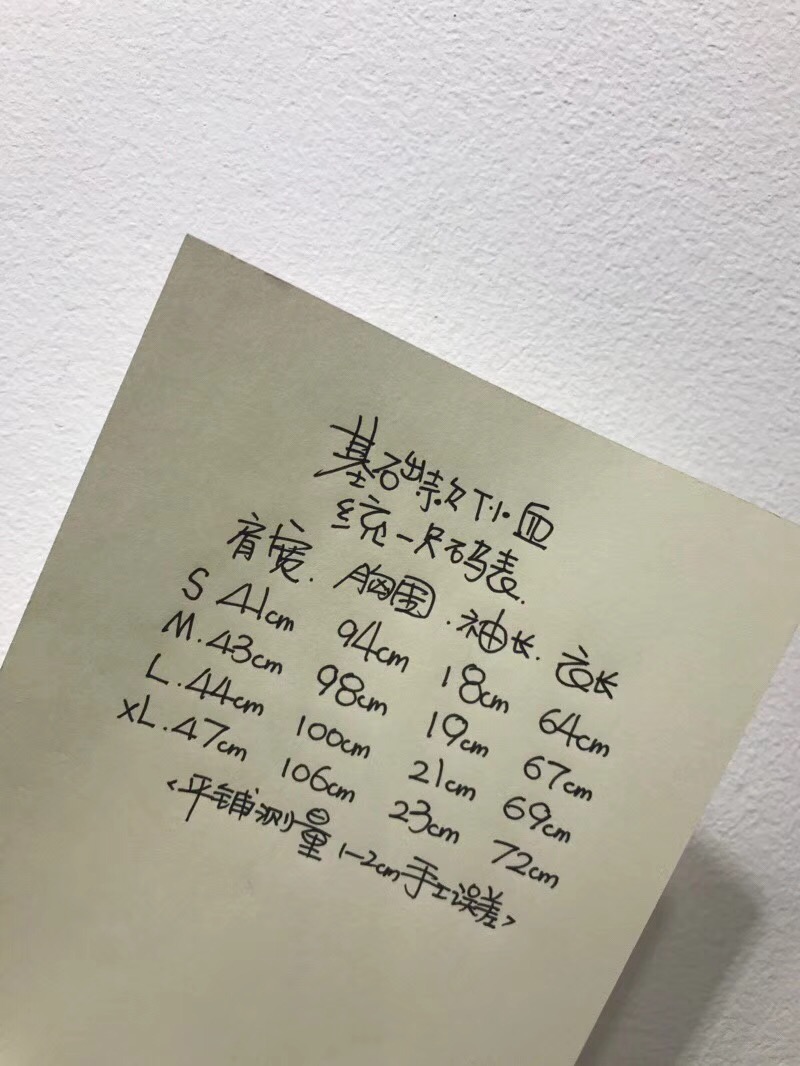 基础款T小血
统一尺码表.
肩宽.胸围.袖长.衣长
S 41cm 94cm 18cm 64cm
M.43cm 98cm 19cm 67cm
L.44cm 100cm 21cm 69cm
XL.47cm 106cm 23cm 72cm
<平铺测量1-2cm手工误差>